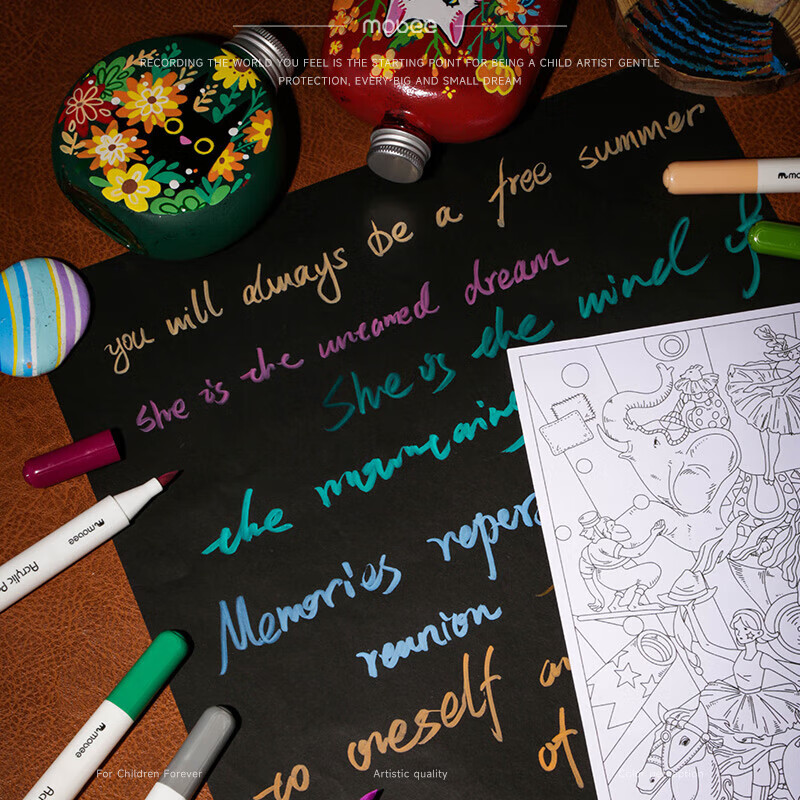 mobee
RECORDING THE WORLD YOU FEEL IS THE STARTING POINT FOR BEING A CHILD ARTIST GENTLE
PROTECTION, EVERY BIG AND SMALL DREAM
you will always be a free summer
She is the untamed dream
She is the wind of
the mountains
Memories
reunion
to oneself
of
mobee
Acrylic
mobee
mobee
For Children Forever
Artistic quality